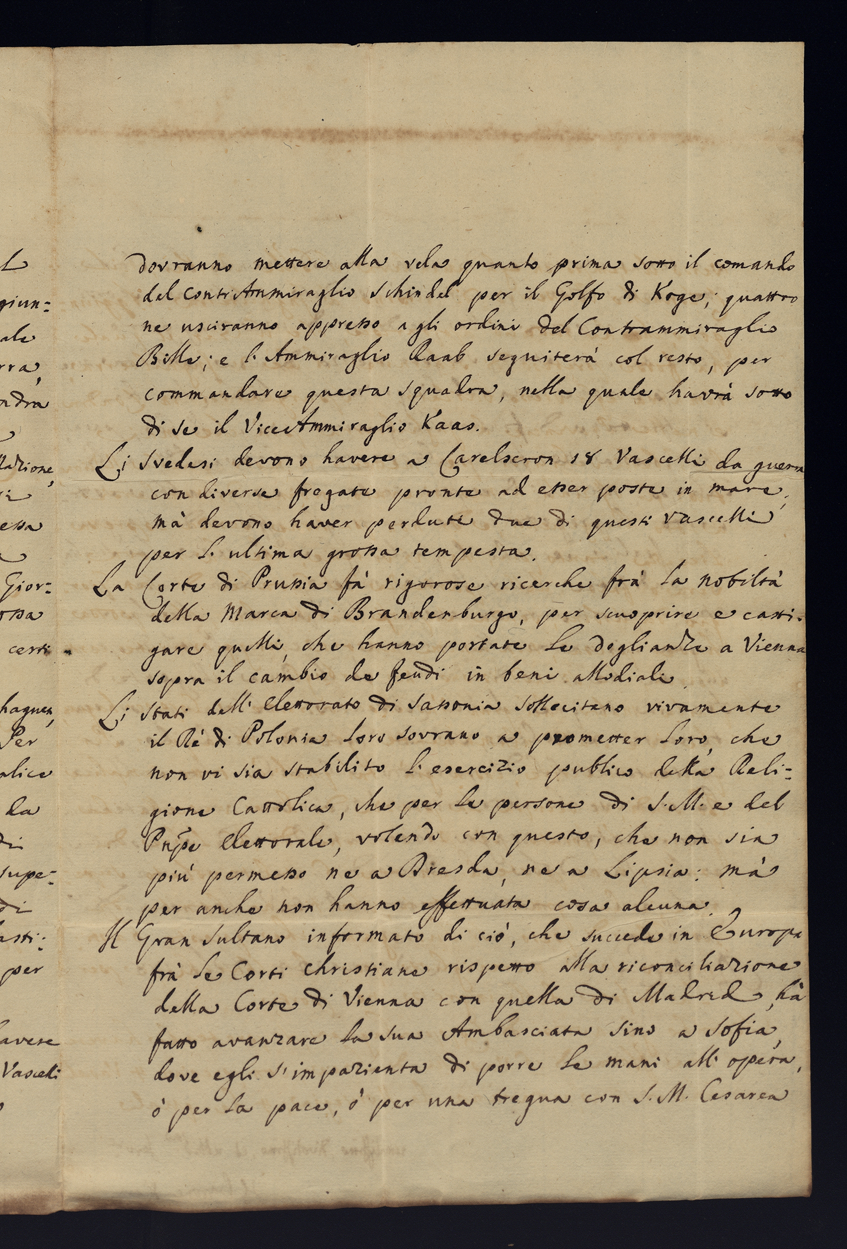 dovranno mettere alla vela quanto prima sotto il comando
del ContrAmmiraglio Schindel per il Golfo di Koge; quattro
ne usciranno appresso agli ordini del Contrammiraglio
Bille; e l'Ammiraglio Raab seguiterà col resto, per
commandare questa squadra, nella quale havrà sotto
di se il ViceAmmiraglio Kaas.
Li Svedesi devono havere a Carelscron 18 Vascelli da guerra
con diverse fregate pronte ad esser poste in mare,
mà devono haver perdute due di questi vascelli
per l'ultima grossa tempesta.
La Corte di Prussia fà rigorose ricerche frà la nobiltà
della Marca di Brandenburgo, per scuoprire e casti-
gare quelli, che hanno portate le doglianze a Vienna
sopra il cambio de feudi in beni allodiale.
Li Stati dell'Elettorato di Sassonia sollecitano vivamente
il Rè di Polonia loro sovrano a prometter loro, che
non vi sia stabilito l'esercizio publico della Reli=
gione Cattolica, che per le persone di S. M. e del
Pnpe Elettorale, volendo con questo, che non sia
più permesso ne a Dresda, ne a Lipsia: mà
per anche non hanno effettuata cosa alcuna.
Il Gran Sultano informato di ciò, che succede in Europa
frà le Corti Christiane rispetto alla riconciliazione
della Corte di Vienna con quella di Madrid, hà
fatto avanzare la sua Ambasciata sino a Sofia,
dove egli s'impazienta di porre le mani all'opera,
ò per la pace, ò per una tregua con S. M. Cesarea